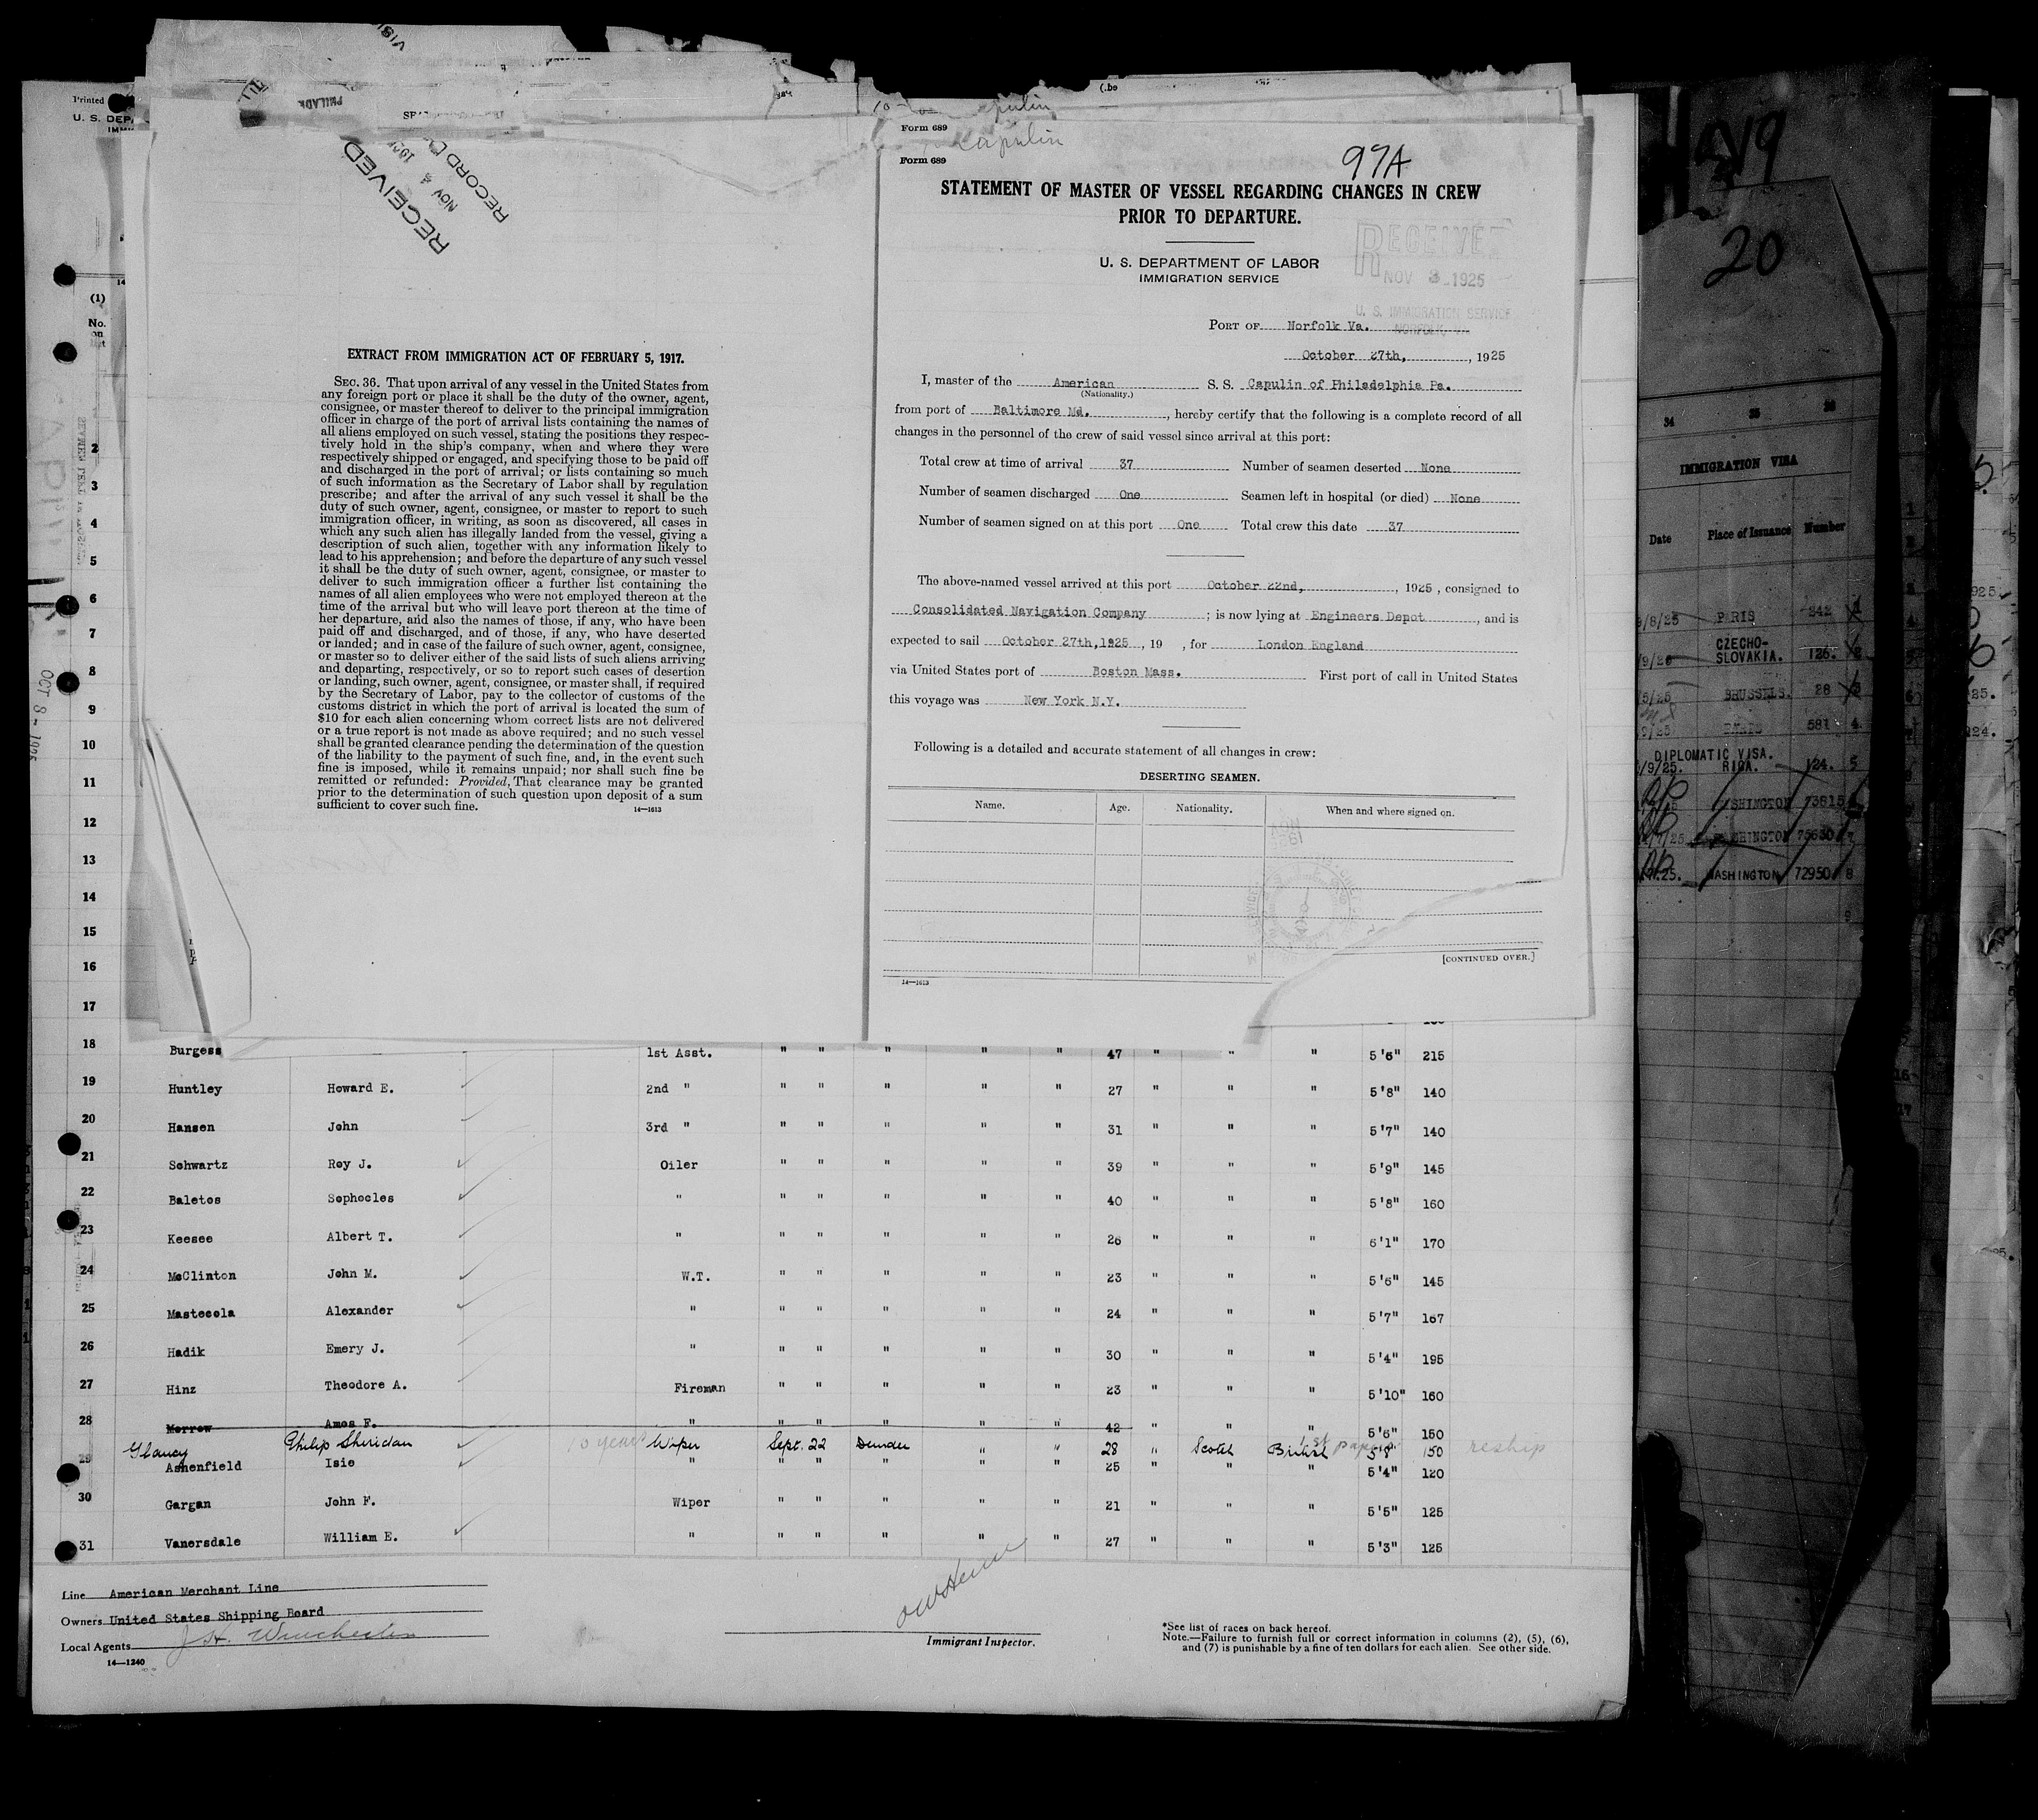 Printed
U. S. DEPA
IMMI
RECEIVED
NOV 4
RECORD
EXTRACT FROM IMMIGRATION ACT OF FEBRUARY 5, 1917.
SEC. 36. That upon arrival of any vessel in the United States from
any foreign port or place it shall be the duty of the owner, agent,
consignee, or master thereof to deliver to the principal immigration
officer in charge of the port of arrival lists containing the names of
all aliens employed on such vessel, stating the positions they respec-
tively hold in the ship's company, when and where they were
respectively shipped or engaged, and specifying those to be paid off
and discharged in the port of arrival; or lists containing so much
of such information as the Secretary of Labor shall by regulation
prescribe; and after the arrival of any such vessel it shall be the
duty of such owner, agent, consignee, or master to report to such
immigration officer, in writing, as soon as discovered, all cases in
which any such alien has illegally landed from the vessel, giving a
description of such alien, together with any information likely to
lead to his apprehension; and before the departure of any such vessel
it shall be the duty of such owner, agent, consignee, or master to
deliver to such immigration officer a further list containing the
names of all alien employees who were not employed thereon at the
time of the arrival but who will leave port thereon at the time of
her departure, and also the names of those, if any, who have been
paid off and discharged, and of those, if any, who have deserted
or landed; and in case of the failure of such owner, agent, consignee,
or master so to deliver either of the said lists of such aliens arriving
and departing, respectively, or so to report such cases of desertion
or landing, such owner, agent, consignee, or master shall, if required
by the Secretary of Labor, pay to the collector of customs of the
customs district in which the port of arrival is located the sum of
$10 for each alien concerning whom correct lists are not delivered
or a true report is not made as above required; and no such vessel
shall be granted clearance pending the determination of the question
of the liability to the payment of such fine, and, in the event such
fine is imposed, while it remains unpaid; nor shall such fine be
remitted or refunded: Provided, That clearance may be granted
prior to the determination of such question upon deposit of a sum
sufficient to cover such fine.
14—1613
Form 689
Capulin
Form 689
97A
STATEMENT OF MASTER OF VESSEL REGARDING CHANGES IN CREW
PRIOR TO DEPARTURE.
U. S. DEPARTMENT OF LABOR
IMMIGRATION SERVICE
RECEIVED
NOV 3 1925
U. S. IMMIGRATION SERVICE
NORFOLK
PORT OF Norfolk Va.
October 27th, , 1925
I, master of the American S. S. Capulin of Philadelphia Pa.
(Nationality.)
from port of Baltimore Md. , hereby certify that the following is a complete record of all
changes in the personnel of the crew of said vessel since arrival at this port:
Total crew at time of arrival 37 Number of seamen deserted None
Number of seamen discharged One Seamen left in hospital (or died) None
Number of seamen signed on at this port One Total crew this date 37
The above-named vessel arrived at this port October 22nd, , 1925 , consigned to
Consolidated Navigation Company ; is now lying at Engineers Depot , and is
expected to sail October 27th,1925 , 19 , for London England
via United States port of Boston Mass. First port of call in United States
this voyage was New York N.Y.
Following is a detailed and accurate statement of all changes in crew:
DESERTING SEAMEN.
Name. Age. Nationality. When and where signed on.
[CONTINUED OVER.]
14—1613
(1)
No.
on
list
2
3
4
5
6
7
8
9
10
11
12
13
14
15
16
17
OCT 8 - 1925
18 Burgess 1st Asst. " " " " " 47 " " " 5'6" 215
19 Huntley Howard E. 2nd " " " " " " 27 " " " 5'8" 140
20 Hansen John 3rd " " " " " " 31 " " " 5'7" 140
21 Schwartz Roy J. Oiler " " " " " 39 " " " 5'9" 145
22 Baletos Sophocles " " " " " " 40 " " " 5'8" 160
23 Keesee Albert T. " " " " " " 26 " " " 6'1" 170
24 McClinton John M. W.T. " " " " " 23 " " " 5'6" 145
25 Mastecola Alexander " " " " " " 24 " " " 5'7" 167
26 Hadik Emery J. " " " " " " 30 " " " 5'4" 195
27 Hinz Theodore A. Fireman " " " " " 23 " " " 5'10" 160
28 Morrow Amos F. " " " " " " 42 " " " 5'6" 150
Glancy Philip Sheridan 10 years Wiper Sept. 22 Dundee " " 28 " Scotch British 1st papers 5'8" 150 reship
29 Ashenfield Isie " " " " " " 25 " " " 5'4" 120
30 Gargan John F. Wiper " " " " " 21 " " " 5'5" 125
31 Vanersdale William E. " " " " " " 27 " " " 5'3" 125
Line American Merchant Line
Owners United States Shipping Board
Local Agents J H. Winchester
14—1240
Immigrant Inspector.
*See list of races on back hereof.
Note.—Failure to furnish full or correct information in columns (2), (5), (6),
and (7) is punishable by a fine of ten dollars for each alien. See other side.
20
34 35 36
IMMIGRATION VISA
Date Place of Issuance Number
9/8/25 PARIS 242
CZECHO-
SLOVAKIA. 126.
5/25 BRUSSELS. 28
PARIS 581 4
DIPLOMATIC VISA.
/9/25. RIGA. 124. 5
WASHINGTON 73615
WASHINGTON 75630 7
WASHINGTON 72950 8